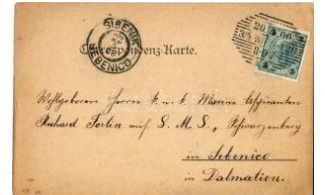 ŠIBENIK
SEBENICO
Correspondenz-Karte.
20
Wohlgeboren Herrn k. u. k. Marine Aspiranten
Richard Fortin auf S. M. S. „Schwarzenberg
in Sebenico
in Dalmatien.